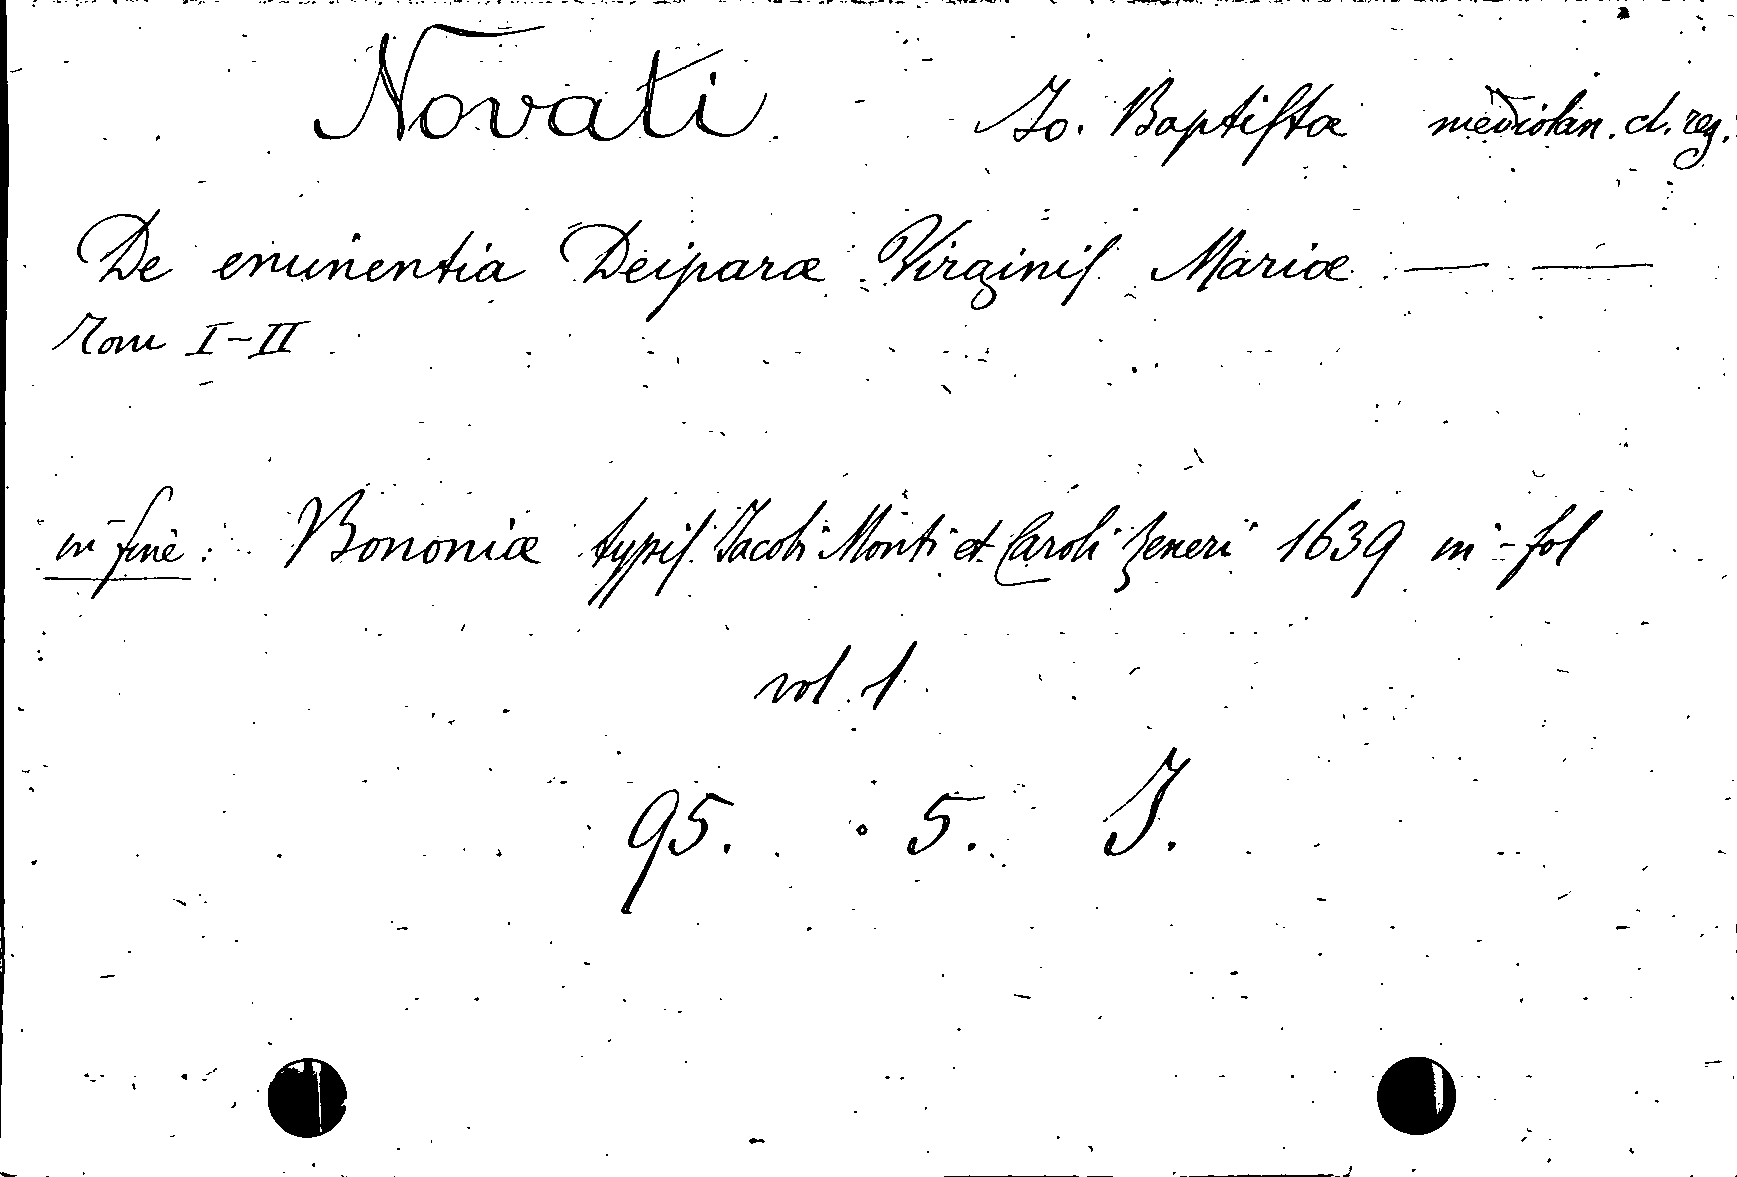 Novati Jo. Baptistæ mediolan. cl. reg.
De eminentia Deiparæ Virginis Mariæ — —
Tom I-II
in fine: Bononiæ typis Jacobi Monti et Caroli Zeneri 1639 in-fol
vol. 1
95. 5. J.